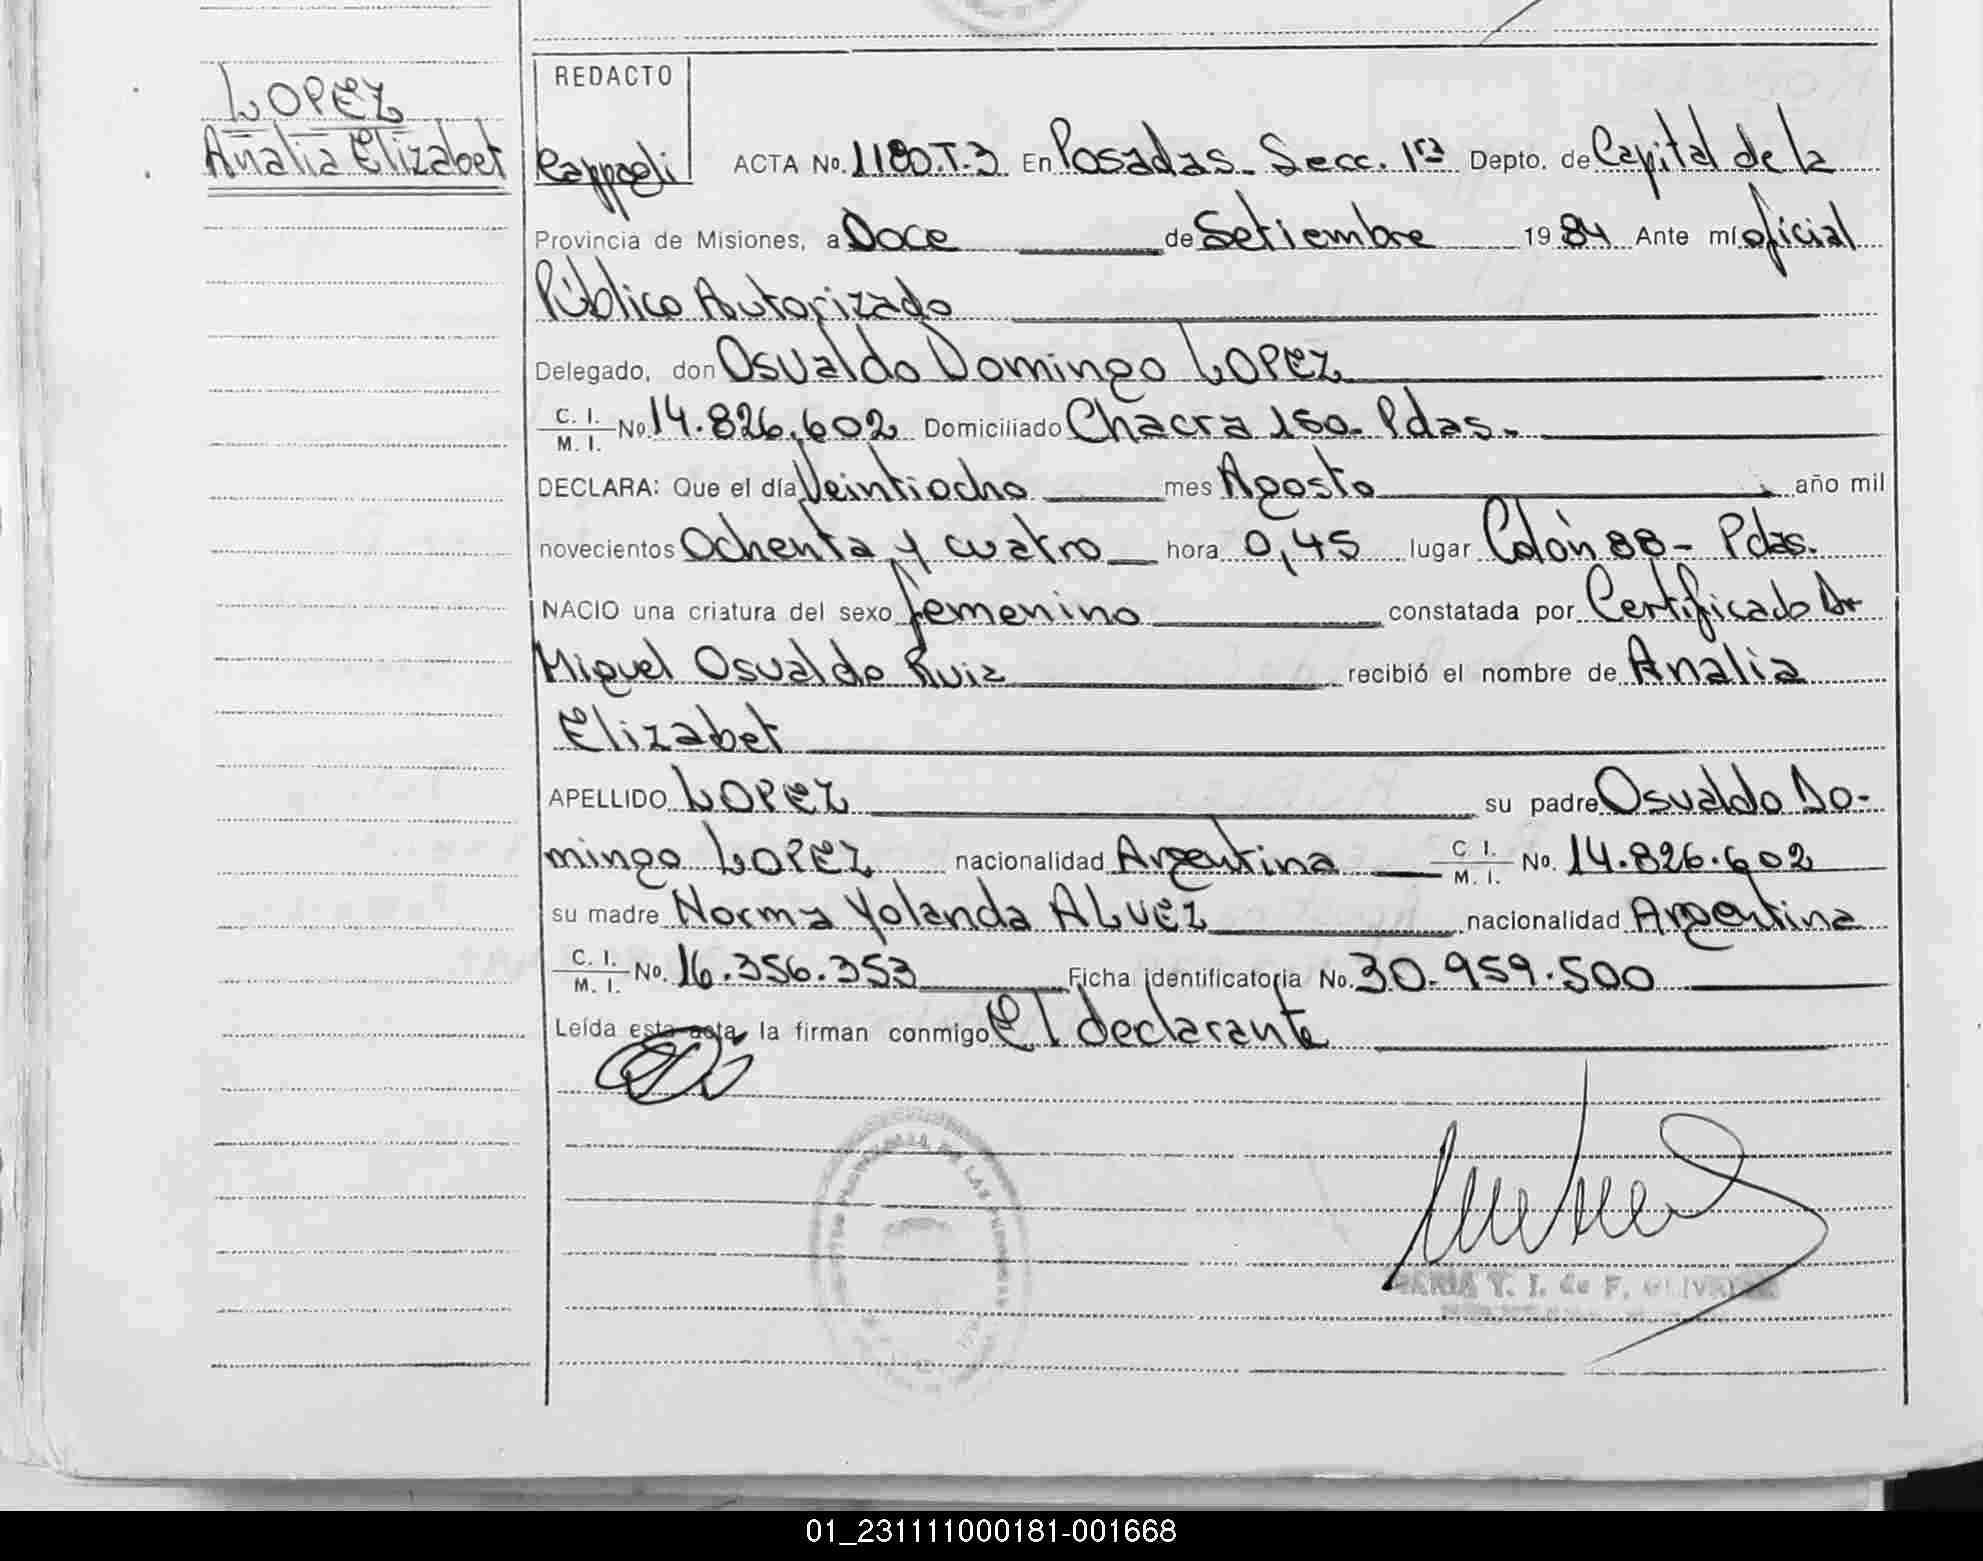 LOPEZ
Analia Elizabet
REDACTO
ACTA No. 1180.T.3 En Posadas. Secc. 1ra Depto. de Capital de la
Provincia de Misiones, a Doce de Setiembre 1984 Ante mí oficial
Público Autorizado
Delegado, don Osvaldo Domingo LOPEZ
C. I. / M. I. No. 14.826.602 Domiciliado Chacra 150. Pdas.
DECLARA: Que el día Veintiocho mes Agosto año mil
novecientos Ochenta y cuatro hora 0,45 lugar Colón 88 - Pdas.
NACIO una criatura del sexo femenino constatada por Certificado Dr
Miguel Osvaldo Ruiz recibió el nombre de Analia
Elizabet
APELLIDO LOPEZ su padre Osvaldo Do-
mingo LOPEZ nacionalidad Argentina C. I. / M. I. No. 14.826.602
su madre Norma Yolanda ALVEZ nacionalidad Argentina
C. I. / M. I. No. 16.356.353 Ficha identificatoria No. 30.959.500
Leída esta acta, la firman conmigo El declarante
MARIA Y. I. de F. OLIVEIRA
01_231111000181-001668